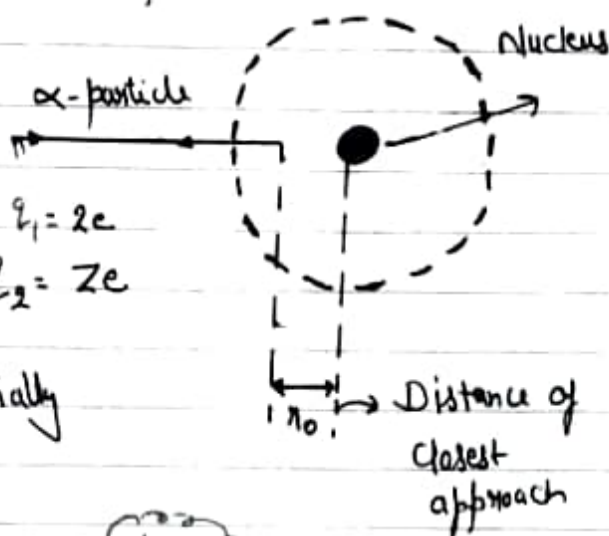 Nucleus
α-particle
q₁ = 2e
q₂ = Ze
ially
r₀
Distance of
closest
approach